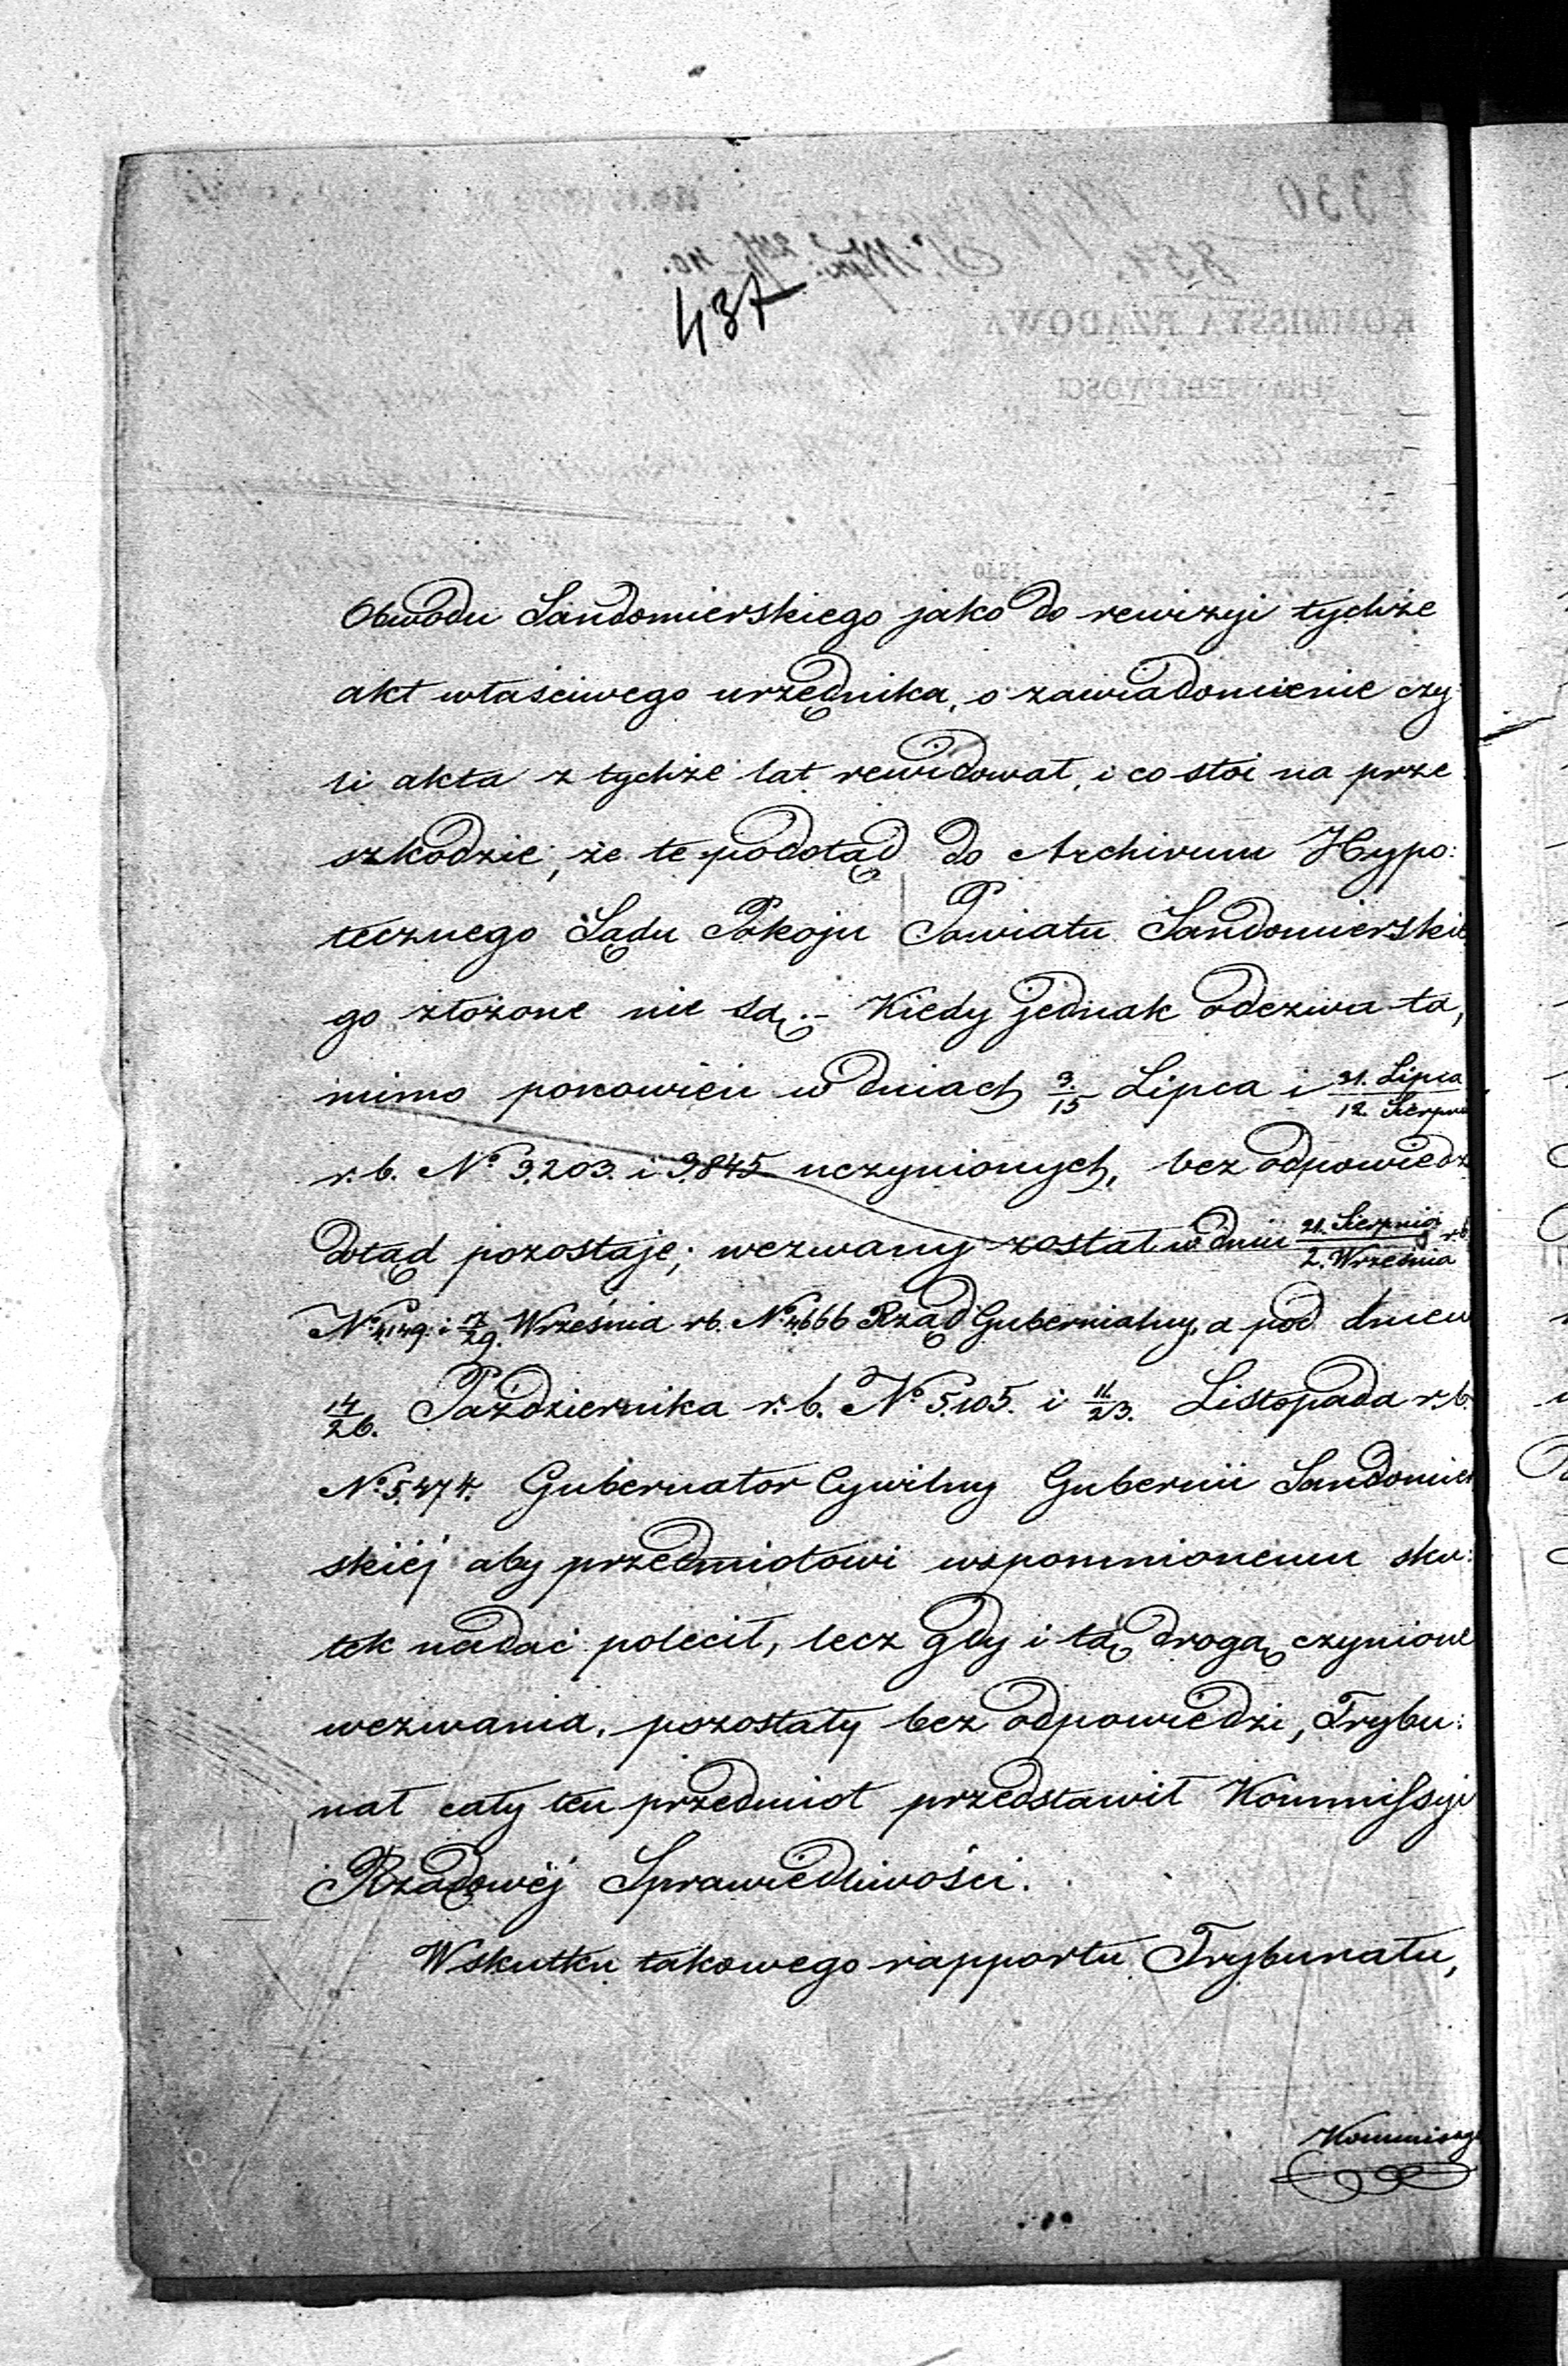 437
Obwodu Sandomierskiego jako do rewizyi tychże
akt właściwego urzędnika, o zawiadomienie czy
li akta z tychże lat rewidował, i co stoi na prze
szkodzie, że te podotąd do Archivum Hypo:
tecznego Sądu Pokoju Powiatu Sandomierskie
go złożone nie są.- Kiedy jednak odezwa ta,
mimo ponowień w dniach 3/15 Lipca i 31. Lipca/12 Sierpnia
r. b. No 3203. i 3845 uczynionych, bez odpowiedzi
dotąd pozostaje; wezwany został w dniu 21. Sierpnia/2. Września r.b.
No 4149. i 17/29. Września rb. No 4666 Rząd Gubernialny, a pod dniem
14/26. Października r. b. No 5105. i 11/23. Listopada r.b.
No 5474. Gubernator Cywilny Gubernii Sandomier
skiéj aby przedmiotowi wspomnionemu sku:
tek nadać polecił, lecz gdy i tą drogą czynione
wezwania, pozostały bez odpowiedzi, Trybu:
nał cały ten przedmiot przedstawił Kommissyi
Rządowéj Sprawiedliwości.
Wskutku takowego rapportu Trybunału,
Kommissya